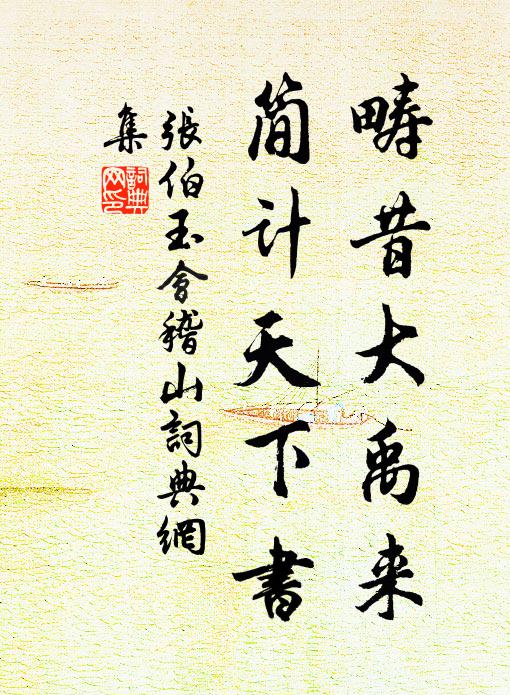 畴昔大禹来
简计天下書
張伯玉會稽山詞典網
集
詞典
网印